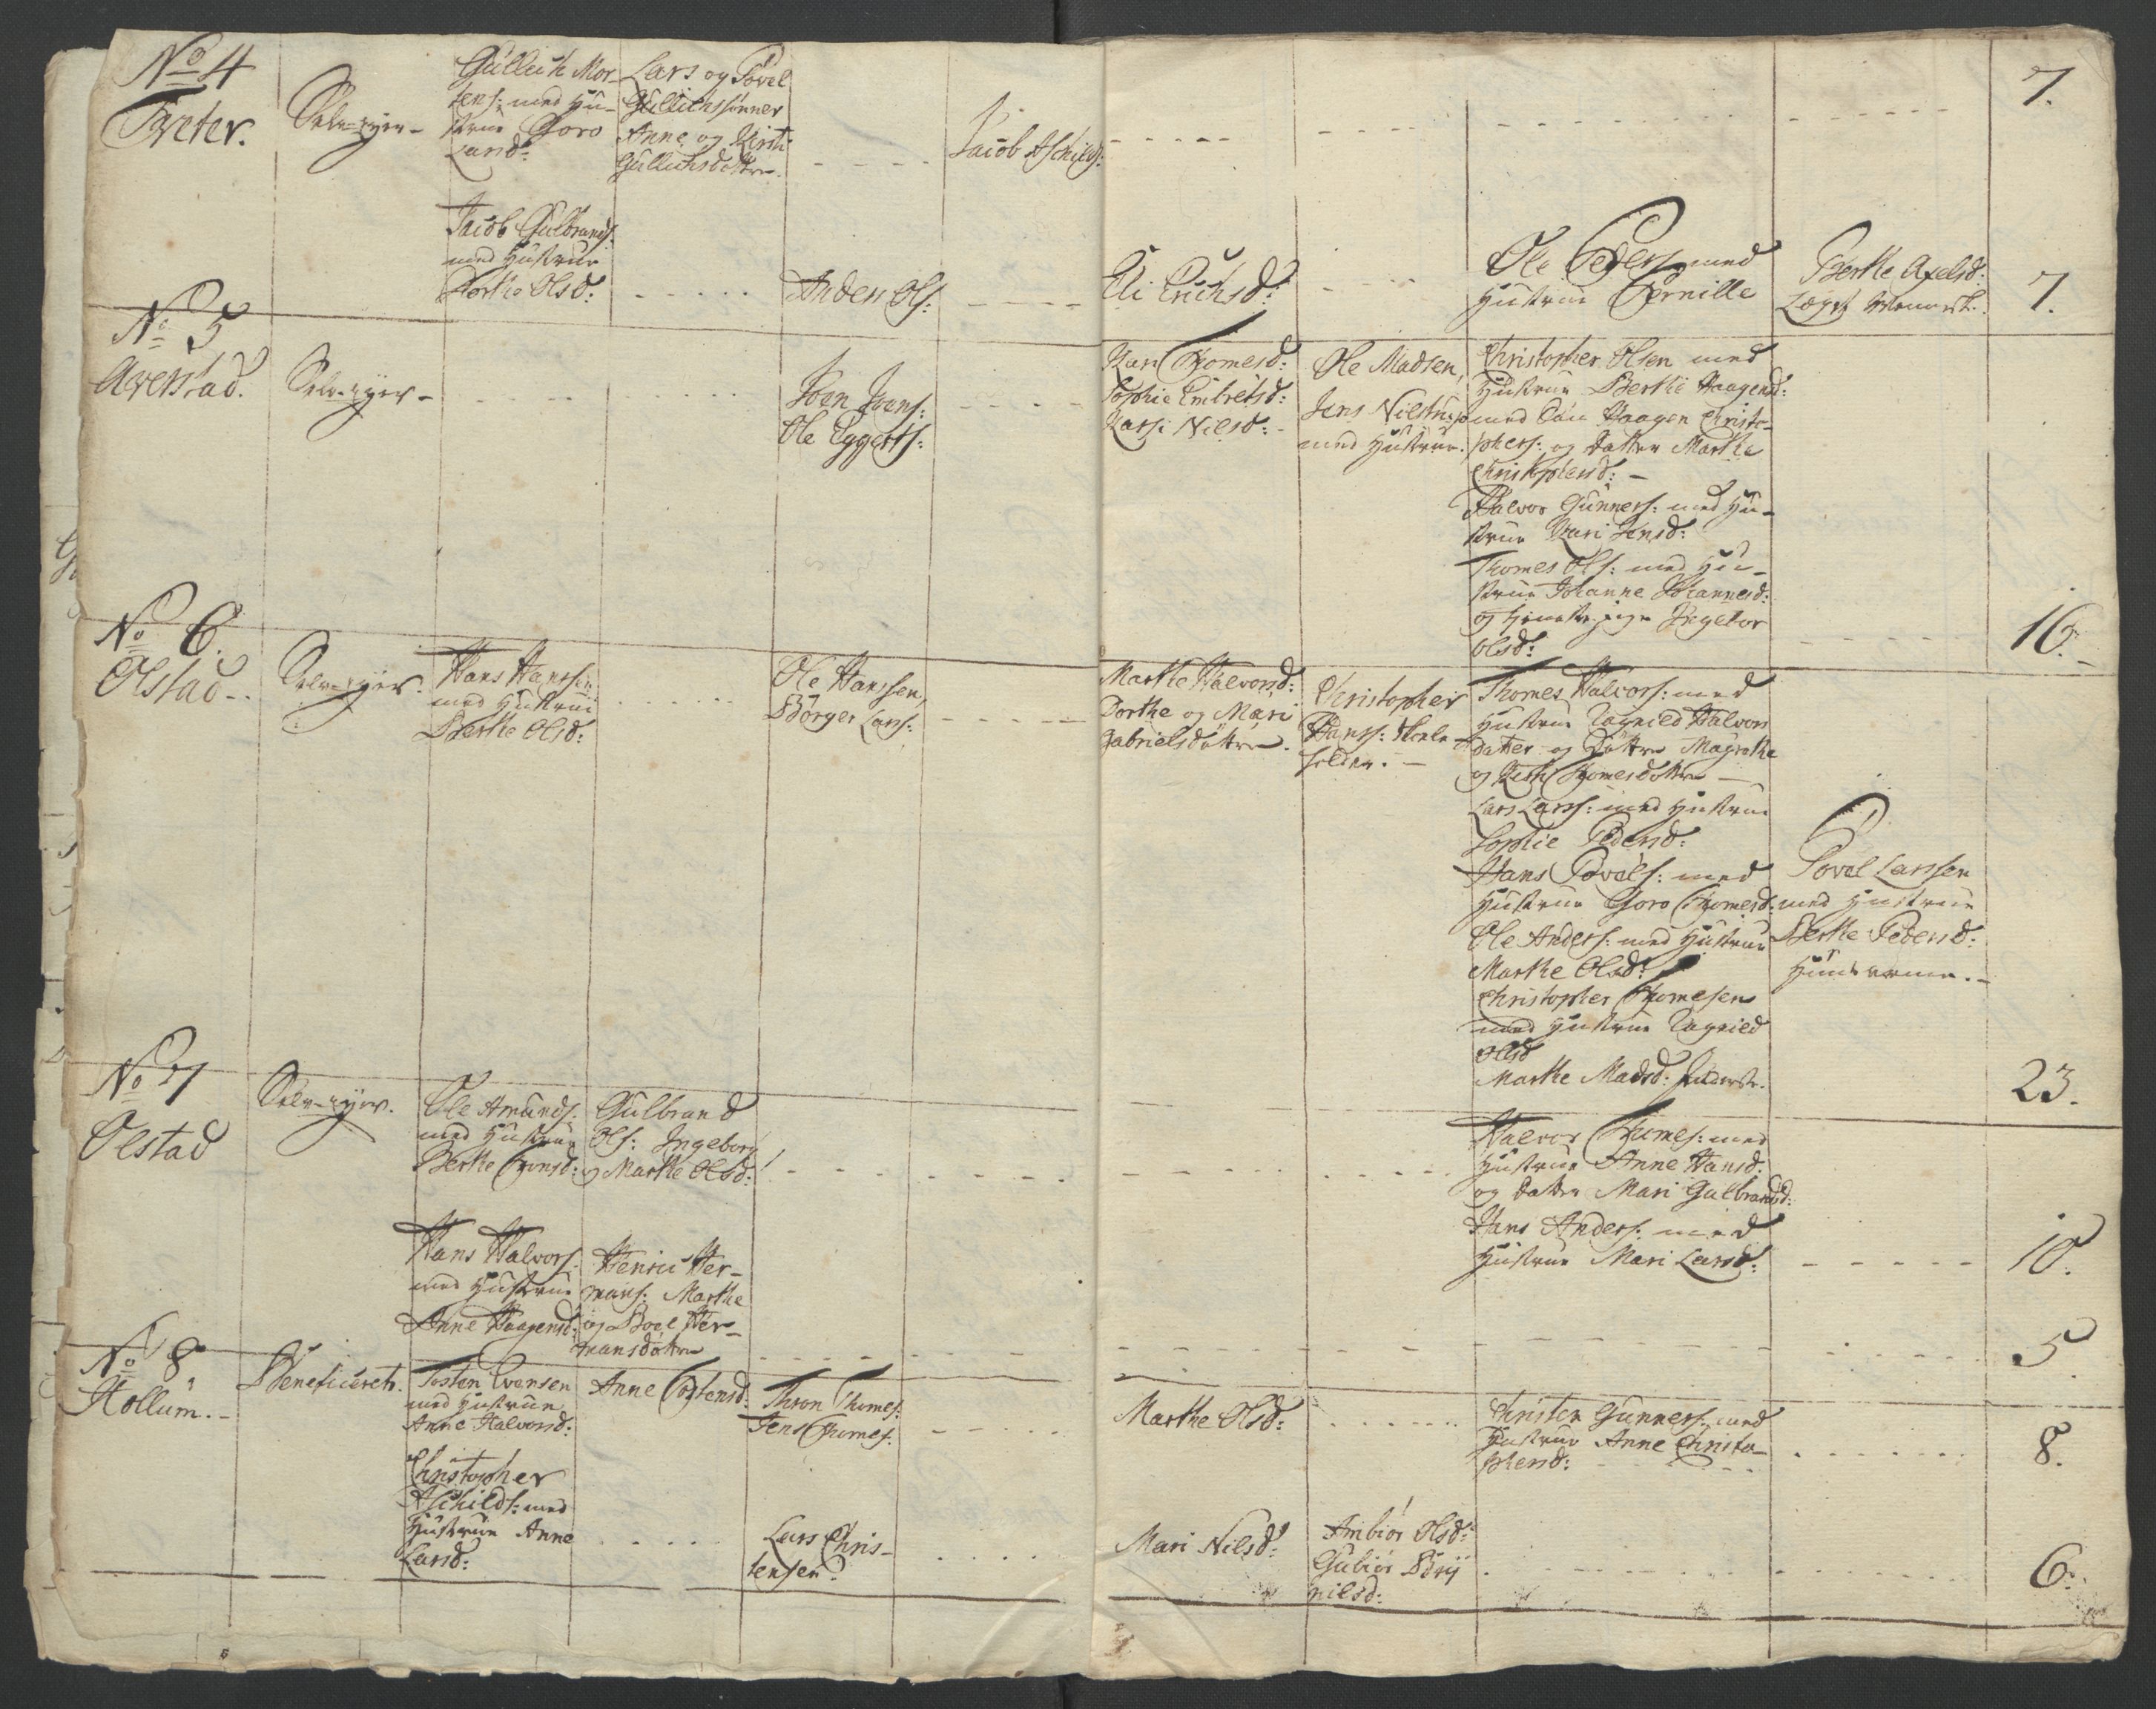 No 4
Tveter.
Selv-eyer -
Gullich Mor-
tens: med Hu-
strue Goro
Larsd:
Lars og Povel
Gullichssønner
Anne og Kirsti
Gullichsdøttre.
Jacob Aschilds:
7.
Jacob Gulbrands:
med Hustrue
Dorthe Olsd:
Anders Ols:
Eli Erichsd:
Ole Peders: med
Hustrue Pernille
Berthe Axelsd:
Lægds
7.
No 5
Averstad.
Selv-eyer -
Joen Joens:
Ole Eggerts:
Kari Thomesd:
Sophie Embretsd:
Karsi Nielsd:
Ole Madsen,
Jens Nilstrup
med Hustrue.
Christopher Olsen med
Hustrue Berthe Haagensd:
med Søn Haagen Christo-
phers: og Datter Marthe
Christophersd: -
Halvor Gunners: med Hu-
strue Kari Jensd:
Thomes Ols: med Hu-
strue Johanne Johannesd:
og Tienstepige Ingebor
Olsd:
16.
No 6.
Olstad.
Selv-eyer.
Hans Hanssen
med Hustrue
Berthe Olsd:
Ole Hanssen,
Børger Lars:
Marthe Halvorsd:
Dorthe og Mari
Gabrielsdøttre.
Christopher
Hanss: Skole-
holder. -
Thomes Halvors: med
Hustrue Ragnild Halvors
datter og Døttre Magrethe
og Kisti Thomesdøttre -
Lars Larss: med Hustrue
Sophie Pedersd:
Hans Povels: med
Hustrue Goro Thomesd:
Ole Anders: med Hustrue
Marthe Olsd:
Christopher Thomesen
med Hustrue Ragnild
Olsd
Marthe Madsd: Inderste.
Povel Larssen
med Hustrue
Berthe Pedersd:
Huusarme. -
23.
No 7
Olstad
Selv-eyer.
Ole Amunds:
med Hustrue
Berthe Tronsd:
Gulbrand
Ols: Ingeborg
og Marthe Olsd:
Halvor Thomes: med
Hustrue Anne Hansd:
og Datter Mari Gulbrandsd:
Hans Anders: med
Hustrue Mari Larsd:
10.
Hans Halvors:
med Hustrue
Anne Haagensd:
Henric Her-
mans: Marthe
og Boel Her-
mansdøttre
5
No 8.
Hollum. -
Beneficeret.
Tosten Evensen
med Hustrue
Anne Halvorsd:
Anne Tostensd:
Thron Thomes:
Jens Thomes:
Marthe Olsd:
Christen Gunners: med
Hustrue Anne Christo-
phersd:
8.
Christopher
Aschilds: med
Hustrue Anne
Larsd:
Lars Chris-
tensen.
Mari Nilsd:
Ambiør Olsd:
Gubiør Bryn
nilsd:
6.